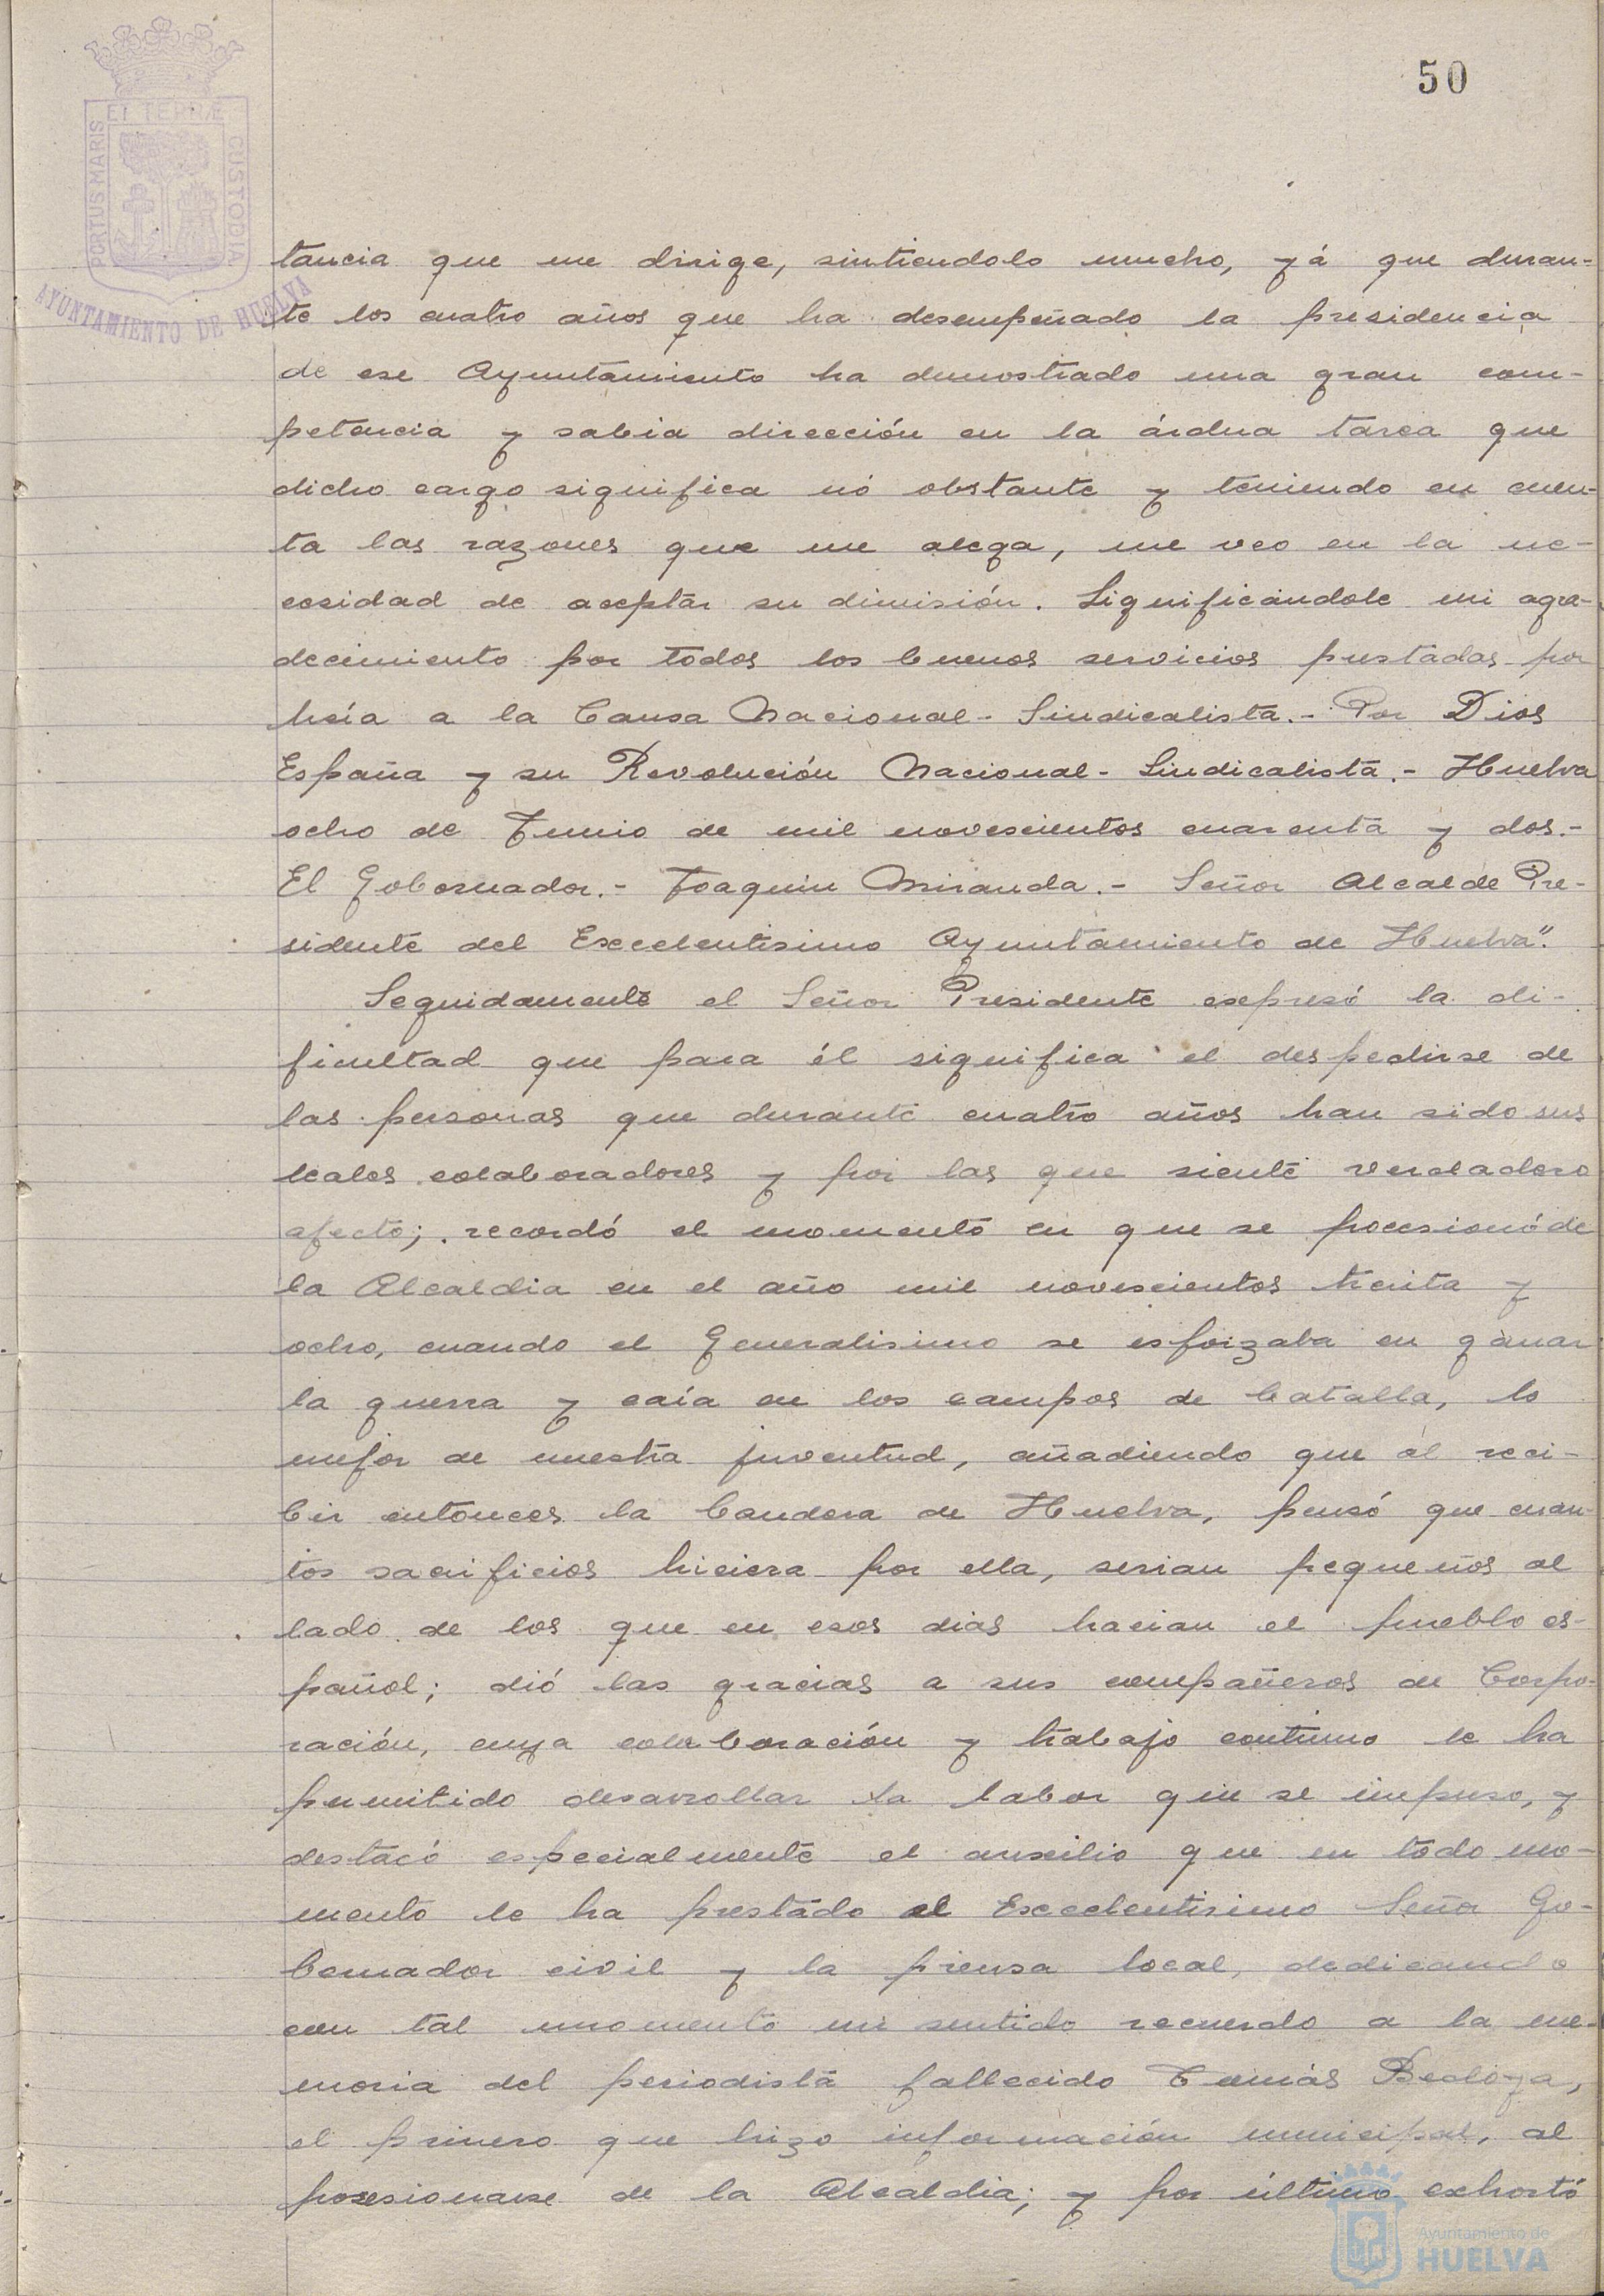 50
PORTUS MARIS ET TERRÆ CUSTODIA
AYUNTAMIENTO DE HUELVA
tancia que me dirige, sintiendolo mucho, yá que duran-
te los cuatro años que ha desempeñado la presidencia
de ese Ayuntamiento ha demostrado una gran com-
petencia y sabia dirección en la árdua tarea que
dicho cargo significa nó obstante y teniendo en cuen-
ta las razones que me alega, me veo en la ne-
cesidad de aceptar su dimisión. Significándole mi agra-
decimiento por todos los buenos servicios prestados por
hsía a la Causa Nacional-Sindicalista.- Por Dios
España y su Revolución Nacional-Sindicalista.- Huelva
ocho de Junio de mil novescientos cuarenta y dos.-
El Gobernador.- Joaquin Miranda.- Señor Alcalde Pre-
sidente del Excelentisimo Ayuntamiento de Huelva".
Seguidamente el Señor Presidente expresó la di-
ficultad que para él significa el despedirse de
las personas que durante cuatro años han sido sus
leales colaboradores y por las que siente verdadero
afecto; recordó el momento en que se pocesionó de
la Alcaldia en el año mil novescientos treita y
ocho, cuando el Generalisimo se esforzaba en ganar
la guerra y caía en los campos de batalla, lo
mejor de nuestra juventud, añadiendo que al reci-
bir entonces la bandera de Huelva, pensó que cuan-
tos sacrificios hiciera por ella, serian pequeños al
lado de los que en esos dias hacian el pueblo es-
pañol; dió las gracias a sus compañeros de Corpo-
ración, cuya colaboración y trabajo continuo le ha
permitido desarrollar la labor que se impuso, y
destacó especialmente el auxilio que en todo mo-
mento le ha prestado el Excelentisimo Señor Go-
bernador civil y la prensa local, dedicando
con tal momento un sentido recuerdo a la me-
moria del periodista fallecido Tomás Bedoya,
el primero que hizo información municipal, al
posesionarse de la Alcaldia; y por último exhortó
Ayuntamiento de
HUELVA